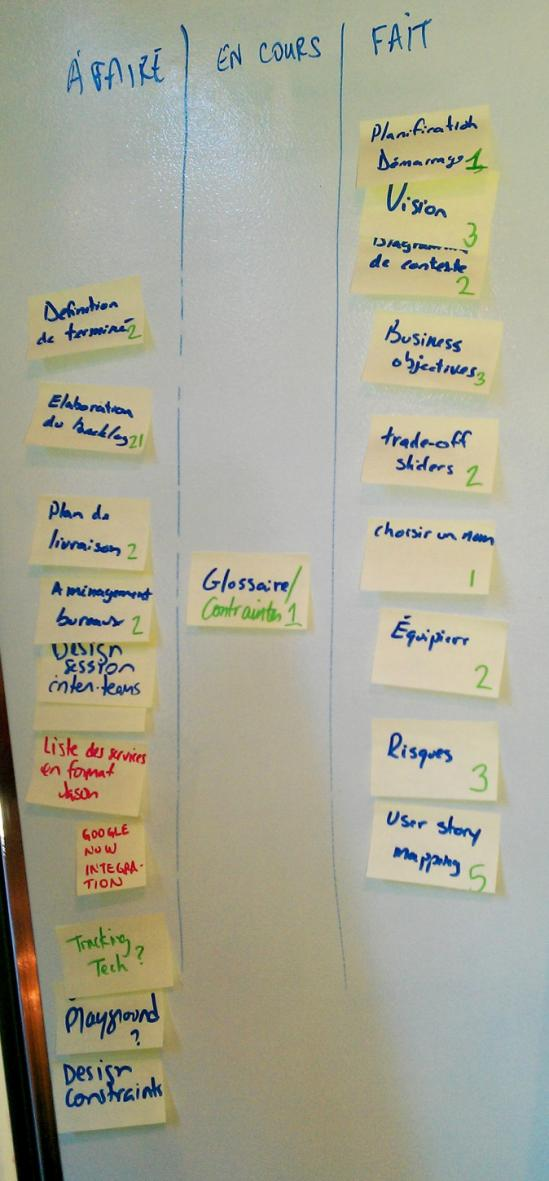 À FAIRE
EN COURS
FAIT
Définition
de terminé 2
Elaboration
du backlog 21
Plan de
livraison 2
Aménagement
bureaux 2
Design
session
inter-teams
Liste des services
en format
Jason
GOOGLE
NOW
INTEGRA-
TION
Tracking
Tech ?
Playground
?
Design
Constraints
Glossaire/
Contraintes 1
Planification
Démarrage 1
Vision
3
Diagramme
de contexte
2
Business
objectives 3
trade-off
sliders 2
choisir un nom
1
Équipier
2
Risques
3
User story
mapping
5